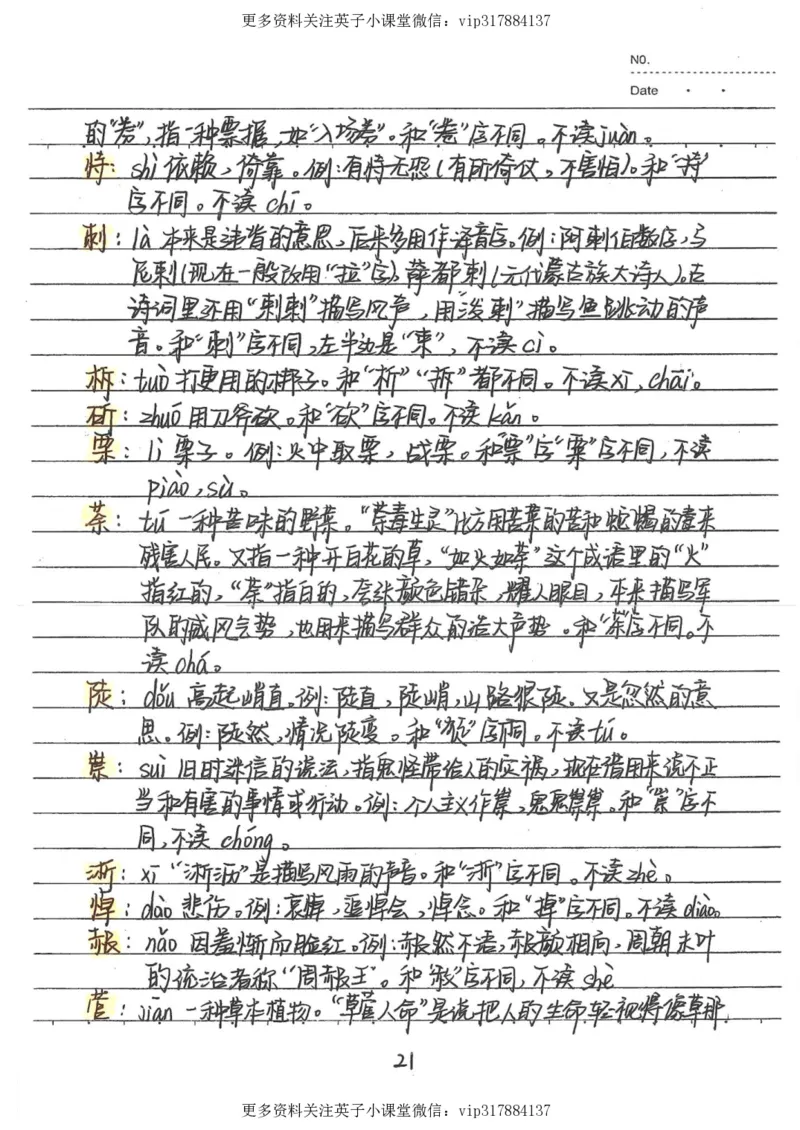 更多资料关注英子小课堂微信：vip317884137
NO.
Date
的“券”，指一种票据，如“入场券”。和“卷”字不同。不读juàn。
恃：shì 依赖，倚靠。例：有恃无恐（有所倚仗。不害怕）。和“持”
字不同。不读 chí。
剌：là 本来是违背的意思，后来多用作译音字。例：阿剌伯数字，马
尼剌（现在一般改用“拉”字），萨都剌（元代蒙古族大诗人）。古
诗词里还用“剌剌”描写风声，用“泼剌”描写鱼跳动的声
音。和“刺”字不同，左半边是“束”，不读cì。
柝：tuò 打更用的梆子。和“析”“拆”都不同。不读xī，chāi。
斫：zhuó 用刀斧砍。和“砍”字不同。不读kǎn。
栗：lì 栗子。例：火中取栗，战栗。和“票”字“粟”字不同，不读
piào，sù。
荼：tú 一种苦味的野菜。“荼毒生灵”比方用苦菜的苦和蛇蝎的毒来
残害人民。又指一种开白花的草，“如火如荼”这个成语里的“火”
指红的，“荼”指白的，夸张颜色错杂，耀人眼目，本来描写军
队的威风气势，也用来描写群众的浩大声势。和“茶”字不同。不
读chá。
陡：dǒu 高起峭直。例：陡直，陡峭，山路很陡。又是忽然的意
思。例：陡然，情况陡变。和“徒”字不同。不读tú。
祟：suì 旧时迷信的说法，指鬼怪带给人的灾祸，现在借用来说不正
当和有害的事情或行动。例：个人主义作祟，鬼鬼祟祟。和“崇”字不
同，不读 chóng。
淅：xī “淅沥”是描写风雨的声音。和“浙”字不同。不读zhè。
悼：dào 悲伤。例：哀悼，追悼会，悼念。和“掉”字不同。不读diào。
赧：nǎn 因羞惭而脸红。例：赧然不语，赧颜相向，周朝末叶
的统治者称“周赧王”。和“赦”字不同，不读 shè
菅：jiān 一种草本植物。“草菅人命”是说把人的生命轻视得像草那
21
更多资料关注英子小课堂微信：vip317884137